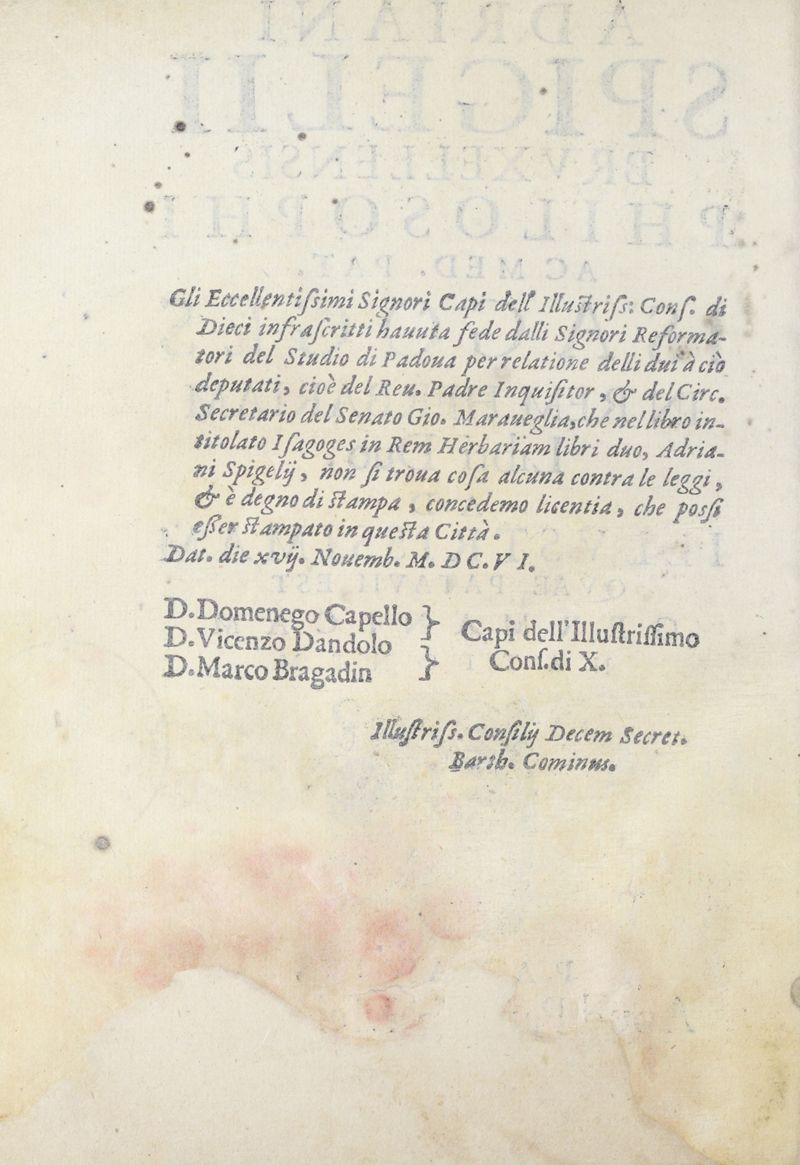 Gli Eccellentiſsimi Signori Capi dell' Illuſtriſs: Conſ. di
Dieci infraſcritti hauuta fede dalli Signori Reforma-
tori del Studio di Padoua per relatione delli dui à ciò
deputati, cioè del Reu. Padre Inquiſitor, & del Circ.
Secretario del Senato Gio. Maraueglia, che nel libro in-
titolato Iſagoges in Rem Herbariam libri duo, Adria-
ni Spigelij, non ſi troua coſa alcuna contra le leggi,
& è degno di ſtampa, concedemo licentia, che poſſi
eſſer ſtampato in queſta Città.
Dat. die xvij. Nouemb. M. D C. V I.
D. Domenego Capello
D. Vicenzo Dandolo
D. Marco Bragadin
} Capi dell'Illuſtriſſimo
} Conſ. di X.
Illuſtriſs. Conſilij Decem Secret.
Barth. Cominus.